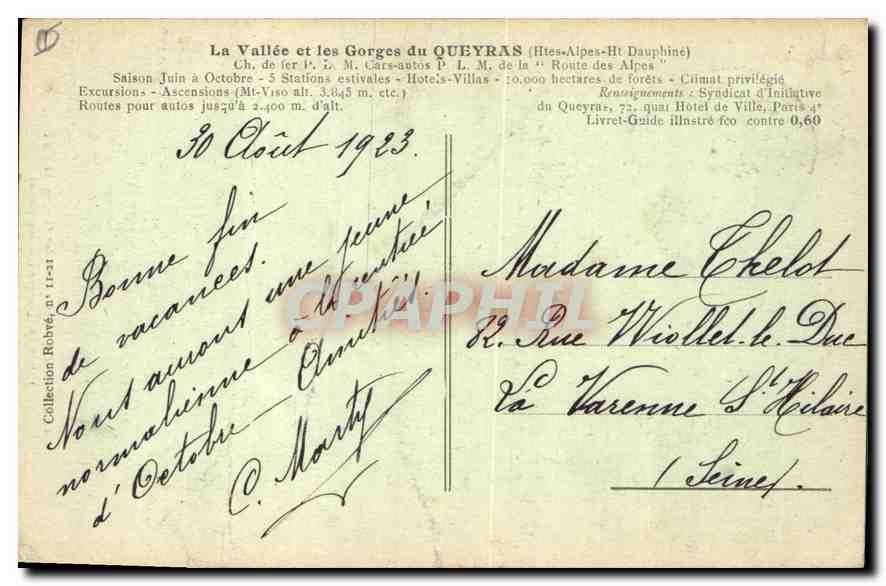 La Vallée et les Gorges du QUEYRAS (Htes-Alpes-Ht Dauphiné)
Ch. de fer P. L. M. Cars-autos P. L. M. de la " Route des Alpes "
Saison Juin à Octobre - 5 Stations estivales - Hotels-Villas - 10.000 hectares de forêts - Climat privilégié
Excursions - Ascensions (Mt-Viso alt. 3.845 m. etc.)
Routes pour autos jusqu'à 2.400 m. d'alt.
Renseignements : Syndicat d'Initiative
du Queyras, 72, quai Hôtel de Ville, Paris 4e
Livret-Guide illustré fco contre 0,60
30 Août 1923.
Bonne fin
de vacances.
Nous aurons une jeune
normalienne à la rentrée
d'Octobre - Amitiés.
C. Marty
Madame Thelot
82. Rue Viollet-le-Duc
La Varenne St Hilaire
(Seine).
Collection Robvé, n° 11-21
CPAPHIL